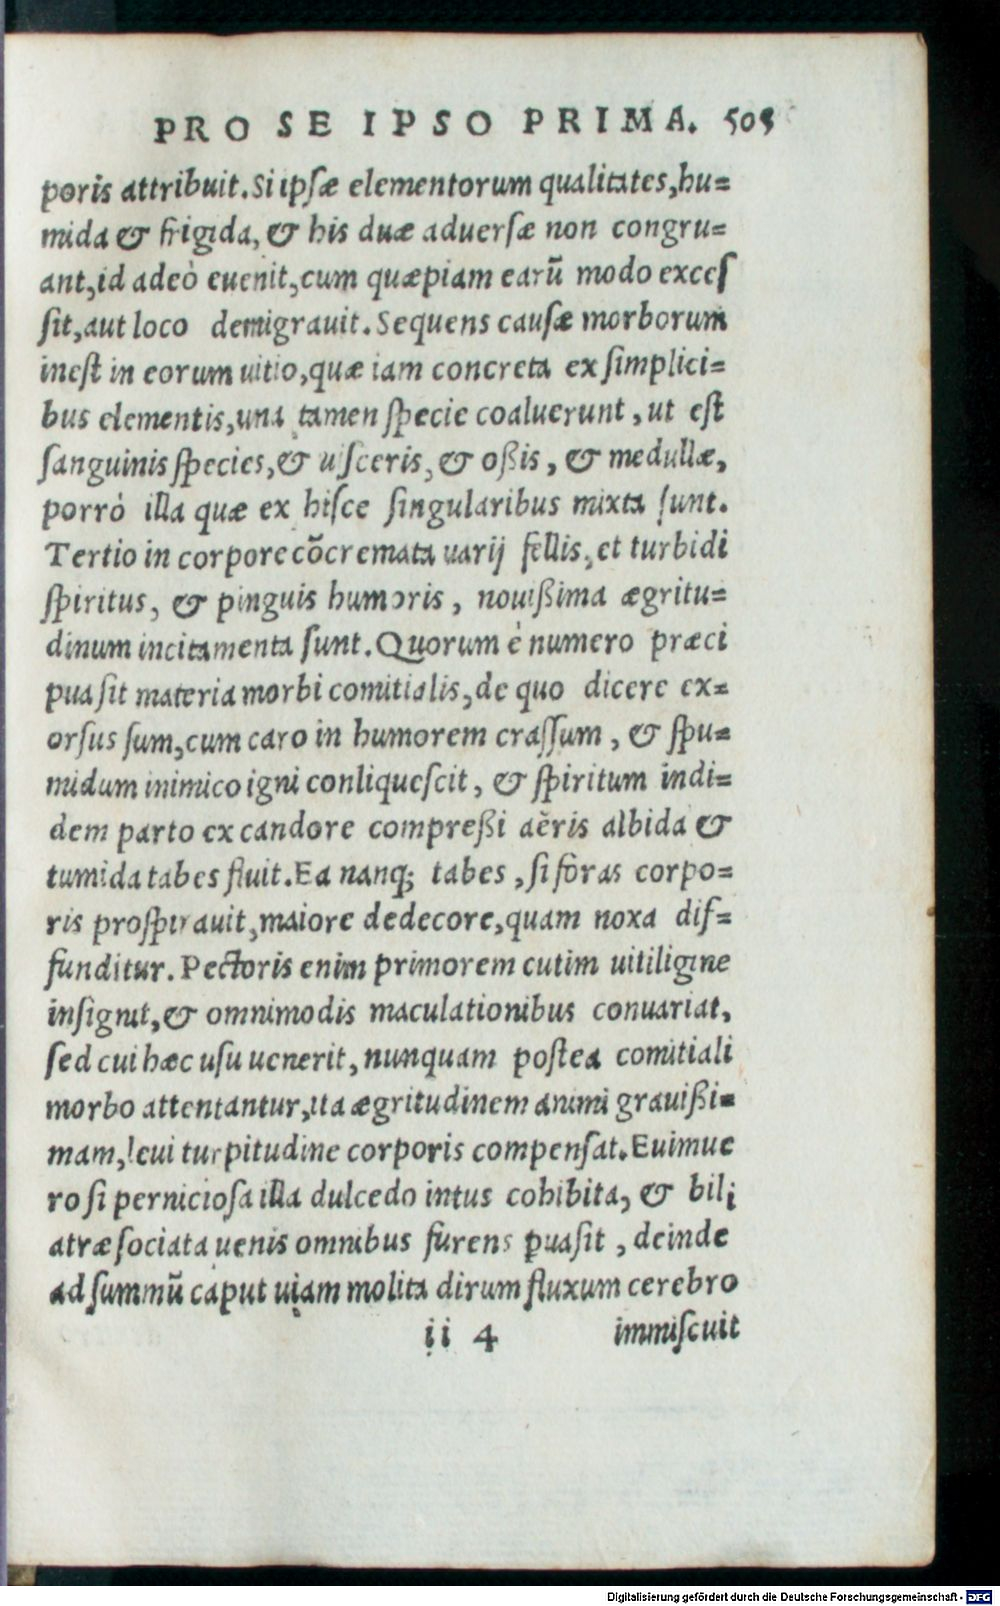 PRO SE IPSO PRIMA. 505
poris attribuit. Si ipsæ elementorum qualitates, hu=
mida & frigida, & his duæ aduersæ non congru=
ant, id adeò euenit, cum quæpiam earũ modo exces
sit, aut loco demigrauit. Sequens causæ morborum
inest in eorum uitio, quæ iam concreta ex simplici=
bus elementis, una tamen specie coaluerunt, ut est
sanguinis species, & uisceris, & oßis, & medullæ,
porrò illa quæ ex hisce singularibus mixta sunt.
Tertio in corpore cõcremata uarij fellis, et turbidi
spiritus, & pinguis humoris, nouißima ægritu=
dinum incitamenta sunt. Quorum è numero præci
pua sit materia morbi comitialis, de quo dicere ex=
orsus sum, cum caro in humorem crassum, & spu=
midum inimico igni conliquescit, & spiritum indi=
dem parto ex candore compreßi aëris albida &
tumida tabes fluit. Ea nanq; tabes, si foras corpo=
ris prospirauit, maiore dedecore, quam noxa dif=
funditur. Pectoris enim primorem cutim uitiligine
insignit, & omnimodis maculationibus conuariat,
sed cui hæc usu uenerit, nunquam postea comitiali
morbo attentantur, ita ægritudinem animi grauißi=
mam, leui turpitudine corporis compensat. Euimue
ro si perniciosa illa dulcedo intus cohibita, & bili
atræ sociata uenis omnibus furens ꝑuasit, deinde
ad summũ caput uiam molita dirum fluxum cerebro
ii 4 immiscuit
Digitalisierung gefördert durch die Deutsche Forschungsgemeinschaft - DFG